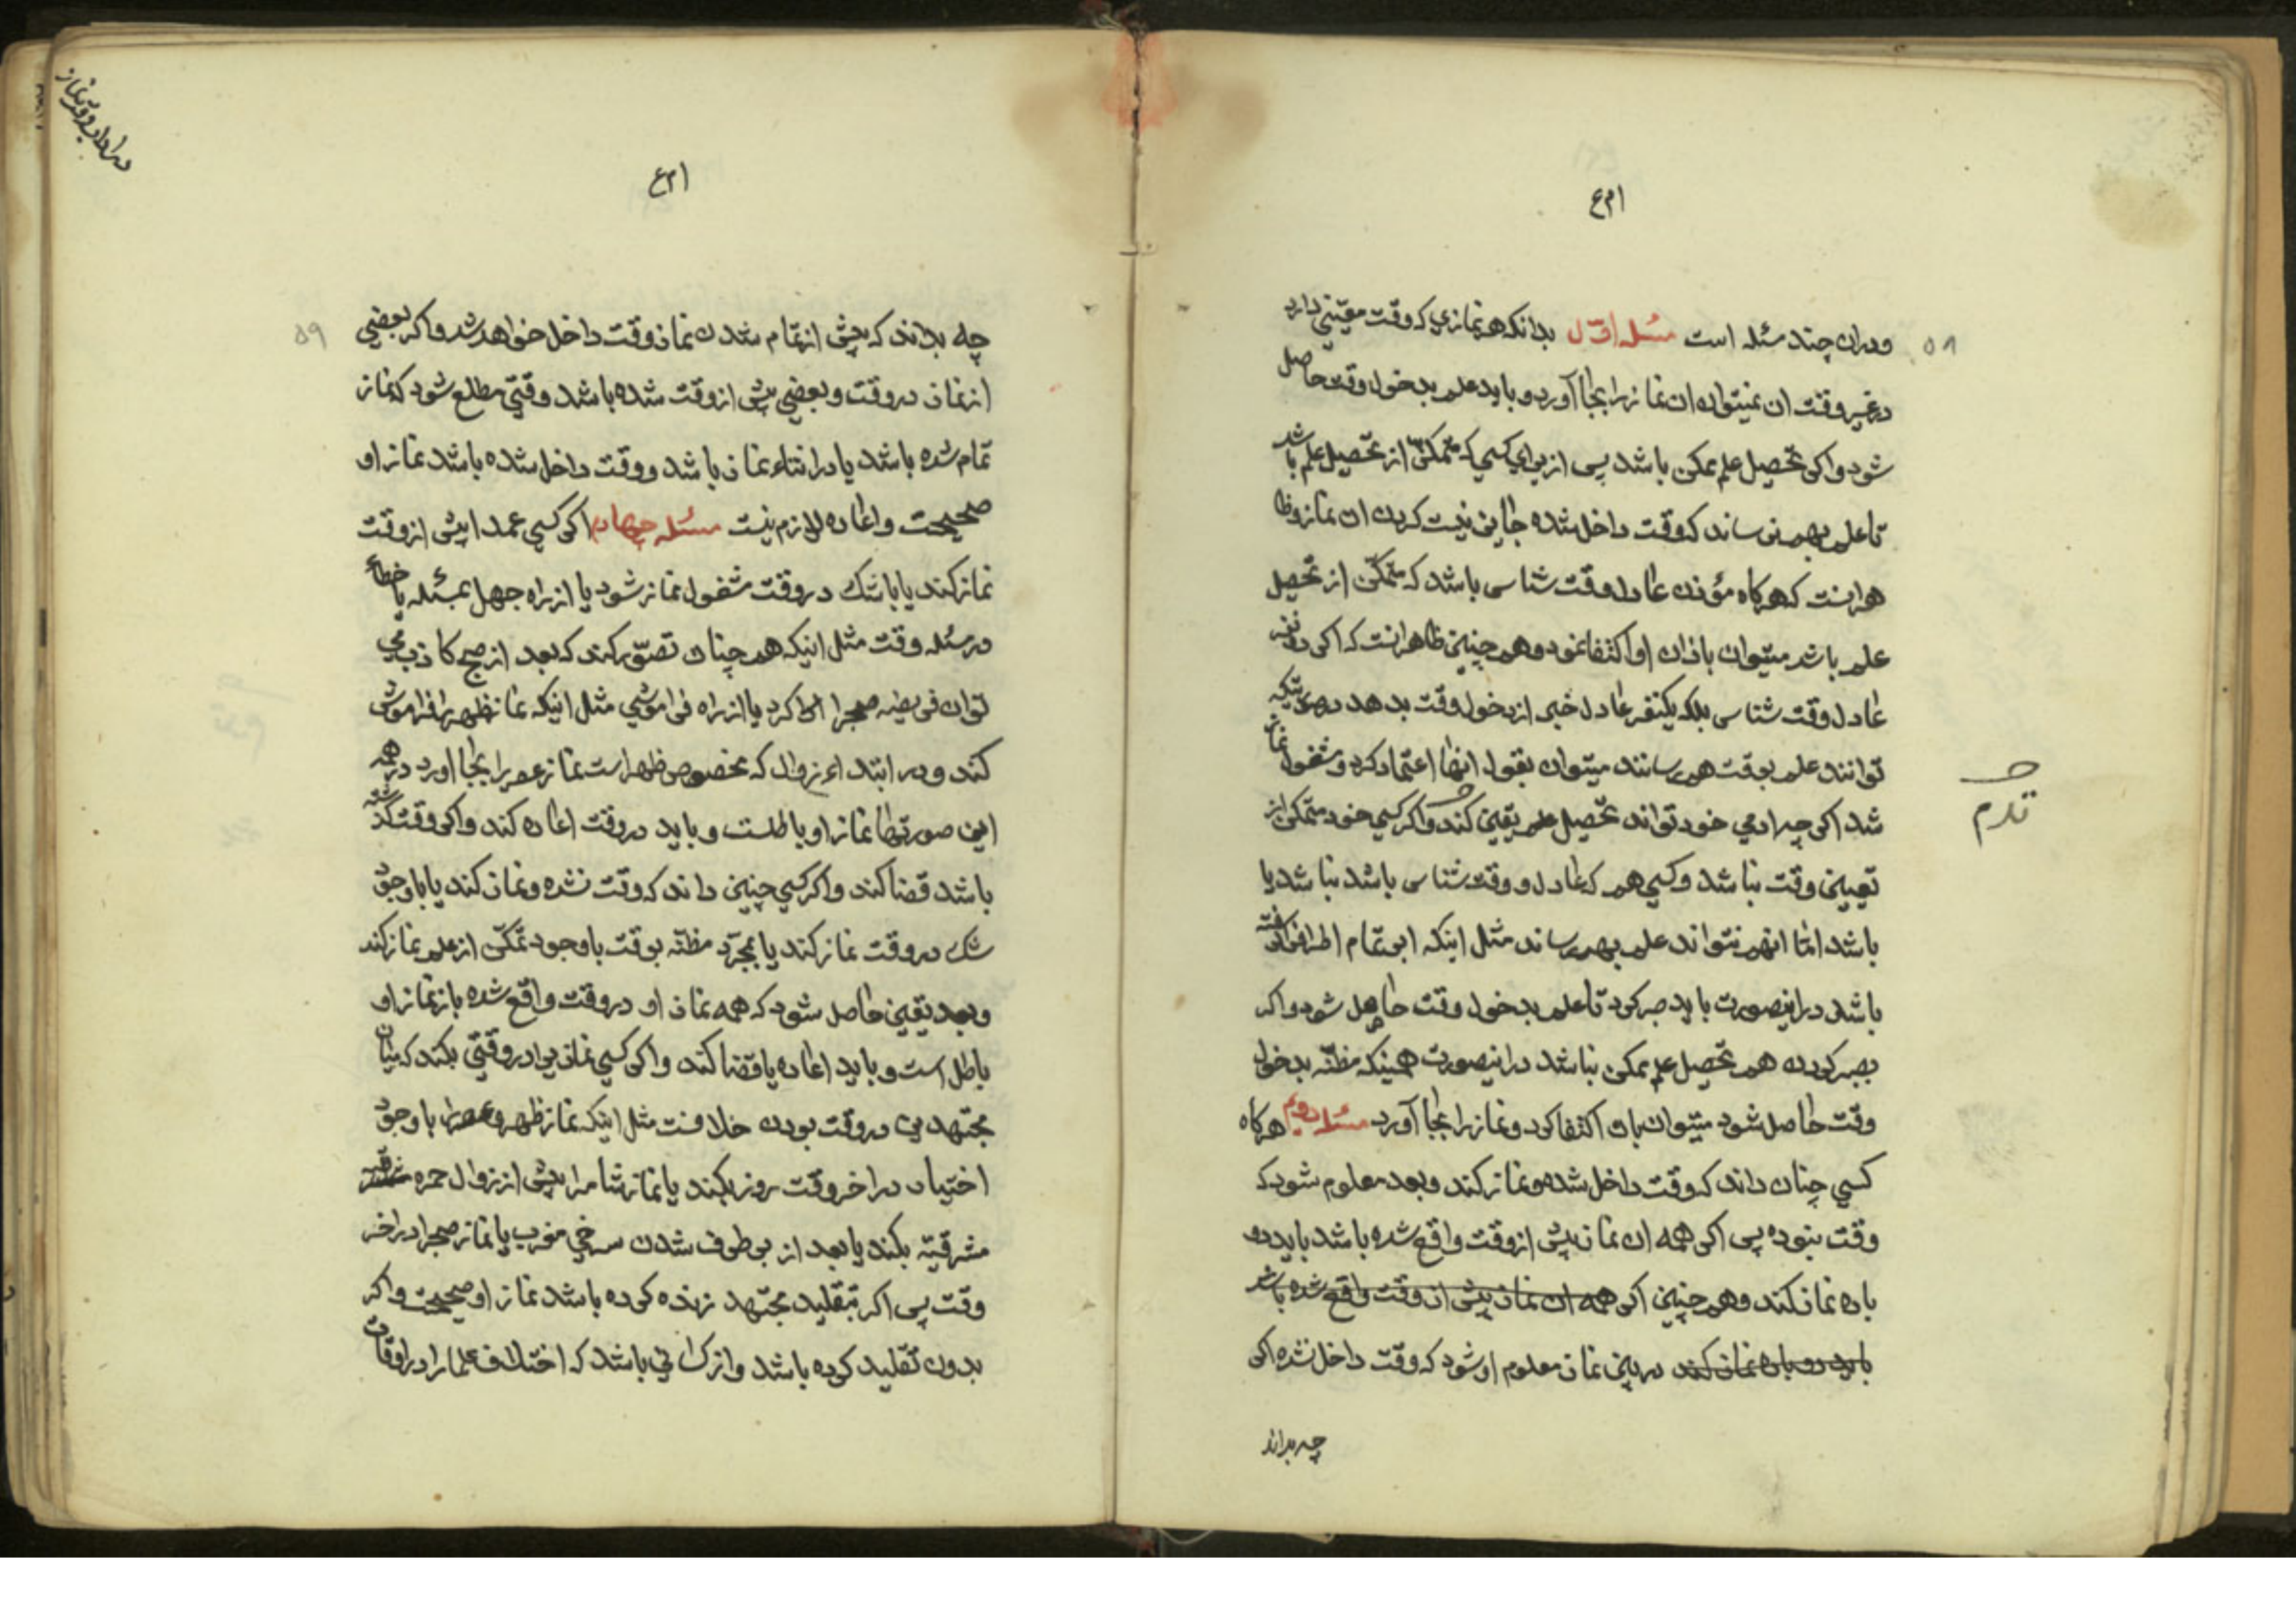 ۵۸
ودران چند مسئله است مسئله اوّل بدانكه هر نمازي كه وقت معيّني دارد
درغير وقت ان نميتوان ان نماز را بجا آورد و بايد علم بدخول وقت حاصل
شود واكر تحصيل علم ممكن باشد پس از براي كسي كه متمكن از تحصيل علم باشد
تا علم بهم نرساند كه وقت داخل شده جايز نيست كردن ان نماز وظا
هر اينست كه هر كاه مؤذن عادل وقت شناسي باشد كه متمكّن از تحصيل
علم باشد ميتوان باذان او اكتفا نمود و هم چنين ظاهر انست كه اكر دو نفر
عادل وقت شناس بلكه يكنفر عادل خبر از دخول وقت بدهد در صورتيكه
توانند علم بوقت بهم رسانند ميتوان بقول انها اعتماد كرد و مشغول نماز
شد اكر چه ادمي خود تواند تحصيل علم يقيني كند واكر كسي خود متمكن از
تعيين وقت نباشد وكسي هم كه عادل و وقت شناس باشد نباشد يا
باشد امّا انهم نتواند علم بهم رساند مثل اينكه ابر تمام اطراف را كرفته
باشد در اينصورت بايد صبر كرد تا علم بدخول وقت حاصل شود واكر
بصبر كردن هم تحصيل علم ممكن نباشد در اينصورت همينكه مظنّه بدخول
وقت حاصل شود ميتوان بان اكتفا كرد و نماز را بجا آورد مسئله دويم هر كاه
كسي چنان داند كه وقت داخل شده و نماز كند وبعد معلوم شود كه
وقت نبوده پس اكر همه ان نماز پيش از وقت واقع شده باشد بايد دو
باره نماز كند وهم چنين اكر همه ان نماز پيش از وقت واقع شده باشد
بايد دو باره نماز كند در بين نماز معلوم او شود كه وقت داخل نشده اكر
چه بداند
۵۹
چه بداند كه پيش از تمام شدن نماز وقت داخل خواهد شد واكر بعضي
از نماز در وقت و بعضي پيش از وقت شده باشد وقتي مطلع شود كه نماز
تمام شده باشد يا در اثناء نماز باشد و وقت داخل شده باشد نماز او
صحيحست واعاده لازم نيست مسئله چهارم اكر كسي عمدا پيش از وقت
نماز كند يا با شك در وقت مشغول نماز شود يا از راه جهل بمسئله يا خطاء
در مسئله وقت مثل اينكه هم چنان تصوّر كند كه بعد از صبح كاذب مي
توان فريضه صبح را ادا كرد يا از راه فراموشي مثل اينكه نماز ظهر را فراموش
كند و در ابتداء زوال كه مخصوص ظهر است نماز عصر را بجا اورد در همه
اين صورتها نماز او باطلست و بايد در وقت اعاده كند واكر وقت كذشته
باشد قضا كند واكر كسي چنين داند كه وقت نشده و نماز كند يا با وجود
شك در وقت نماز كند يا بمجرّد مظنّه بوقت با وجود تمكّن از علم نماز كند
وبعد يقين حاصل شود كه همه نماز او در وقت واقع شده باز نماز او
باطل است و بايد اعاده يا قضا كند واكر كسي نمازيرا در وقتي بكند كه ميان
مجتهدين در وقت بودن خلافست مثل اينكه نماز ظهر و عصر را با وجود
اختيار در اخر وقت روز بكند يا نماز شام را پيش از زوال حمره
مشرقيّه بكند يا بعد از بر طرف شدن سرخي مغرب يا نماز صبح را در اخر
وقت پس اكر بتقليد مجتهد زنده كرده باشد نماز او صحيحست واكر
بدون تقليد كرده باشد و از كساني باشد كه اختلاف علما را در اوقات